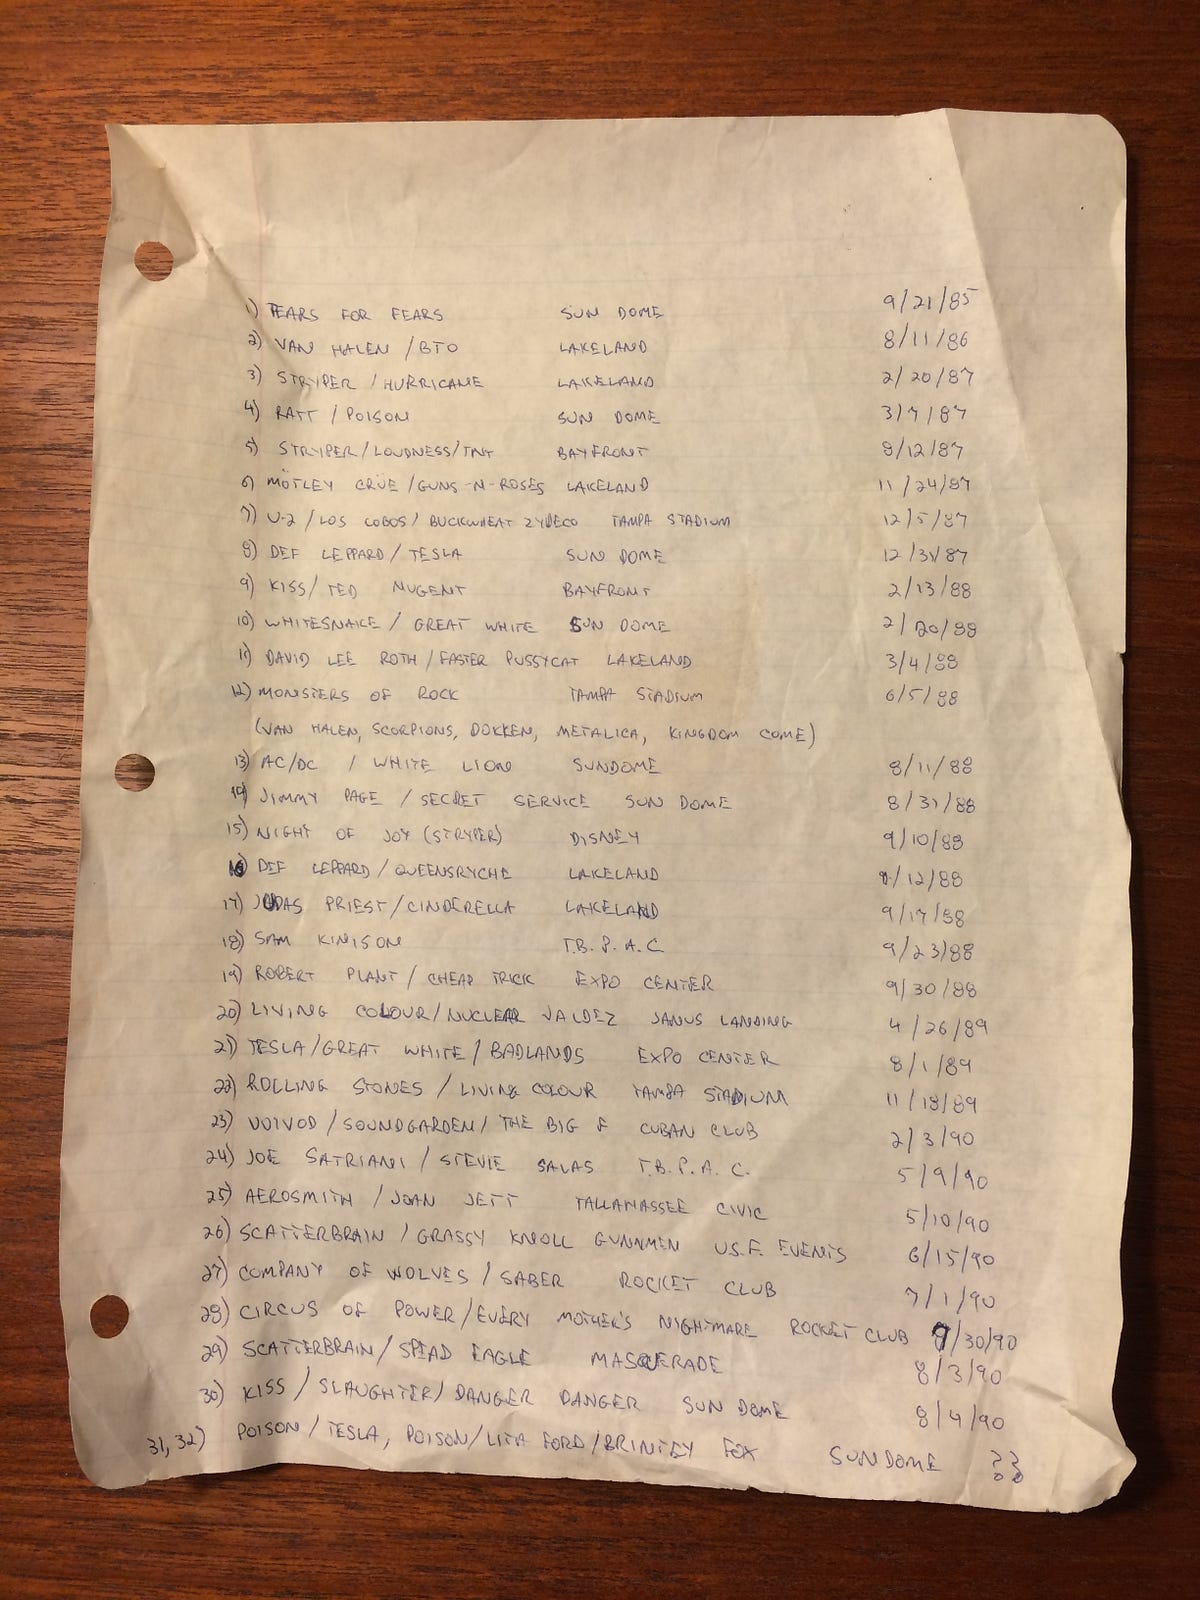 1) TEARS FOR FEARS SUN DOME 9/21/85
2) VAN HALEN / BTO LAKELAND 8/11/86
3) STRYPER / HURRICANE LAKELAND 2/20/87
4) RATT / POISON SUN DOME 3/7/87
5) STRYPER/LOUDNESS/TNT BAYFRONT 8/12/87
6) MÖTLEY CRÜE /GUNS-N-ROSES LAKELAND 11/24/87
7) U-2 / LOS LOBOS / BUCKWHEAT ZYDECO TAMPA STADIUM 12/5/87
8) DEF LEPPARD / TESLA SUN DOME 12/31/87
9) KISS/ TED NUGENT BAYFRONT 2/13/88
10) WHITESNAKE / GREAT WHITE SUN DOME 2/20/88
11) DAVID LEE ROTH / FASTER PUSSYCAT LAKELAND 3/4/88
12) MONSTERS OF ROCK TAMPA STADIUM 6/5/88
(VAN HALEN, SCORPIONS, DOKKEN, METALICA, KINGDOM COME)
13) AC/DC / WHITE LION SUNDOME 8/11/88
14) JIMMY PAGE / SECRET SERVICE SUN DOME 8/31/88
15) NIGHT OF JOY (STRYPER) DISNEY 9/10/88
16) DEF LEPPARD / QUEENSRYCHE LAKELAND /12/88
17) JUDAS PRIEST/CINDERELLA LAKELAND 9/17/88
18) SAM KINISON T.B.P.A.C 9/23/88
19) ROBERT PLANT / CHEAP TRICK EXPO CENTER 9/30/88
20) LIVING COLOUR/NUCLEAR VALDEZ JANUS LANDING 4/26/89
21) TESLA/GREAT WHITE / BADLANDS EXPO CENTER 8/1/89
22) ROLLING STONES / LIVING COLOUR TAMPA STADIUM 11/18/89
23) VOIVOD / SOUNDGARDEN / THE BIG F CUBAN CLUB 2/3/90
24) JOE SATRIANI / STEVIE SALAS T.B.P.A.C. 5/9/90
25) AEROSMITH / JOAN JETT TALLAHASSEE CIVIC 5/10/90
26) SCATTERBRAIN / GRASSY KNOLL GUNNMEN U.S.F. EVENTS 6/15/90
27) COMPANY OF WOLVES / SABER ROCKET CLUB 7/1/90
28) CIRCUS OF POWER/EVERY MOTHER'S NIGHTMARE ROCKET CLUB 7/30/90
29) SCATTERBRAIN / SPEAD EAGLE MASQUERADE 8/3/90
30) KISS / SLAUGHTER/ DANGER DANGER SUN DOME 8/4/90
31, 32) POISON / TESLA, POISON/LITA FORD/BRINTEY FOX SUNDOME ??